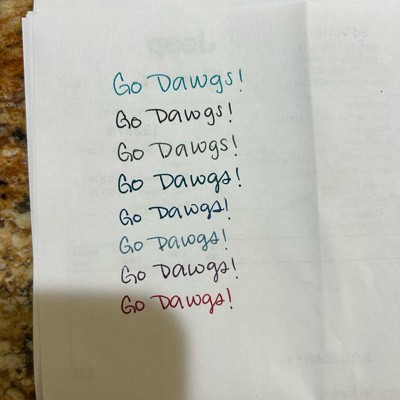 Go Dawgs!
Go Dawgs!
Go Dawgs!
Go Dawgs!
Go Dawgs!
Go Dawgs!
Go Dawgs!
Go Dawgs!